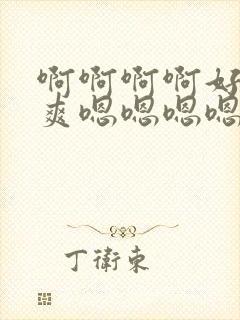 啊啊啊啊好
爽嗯嗯嗯嗯
丁衛東